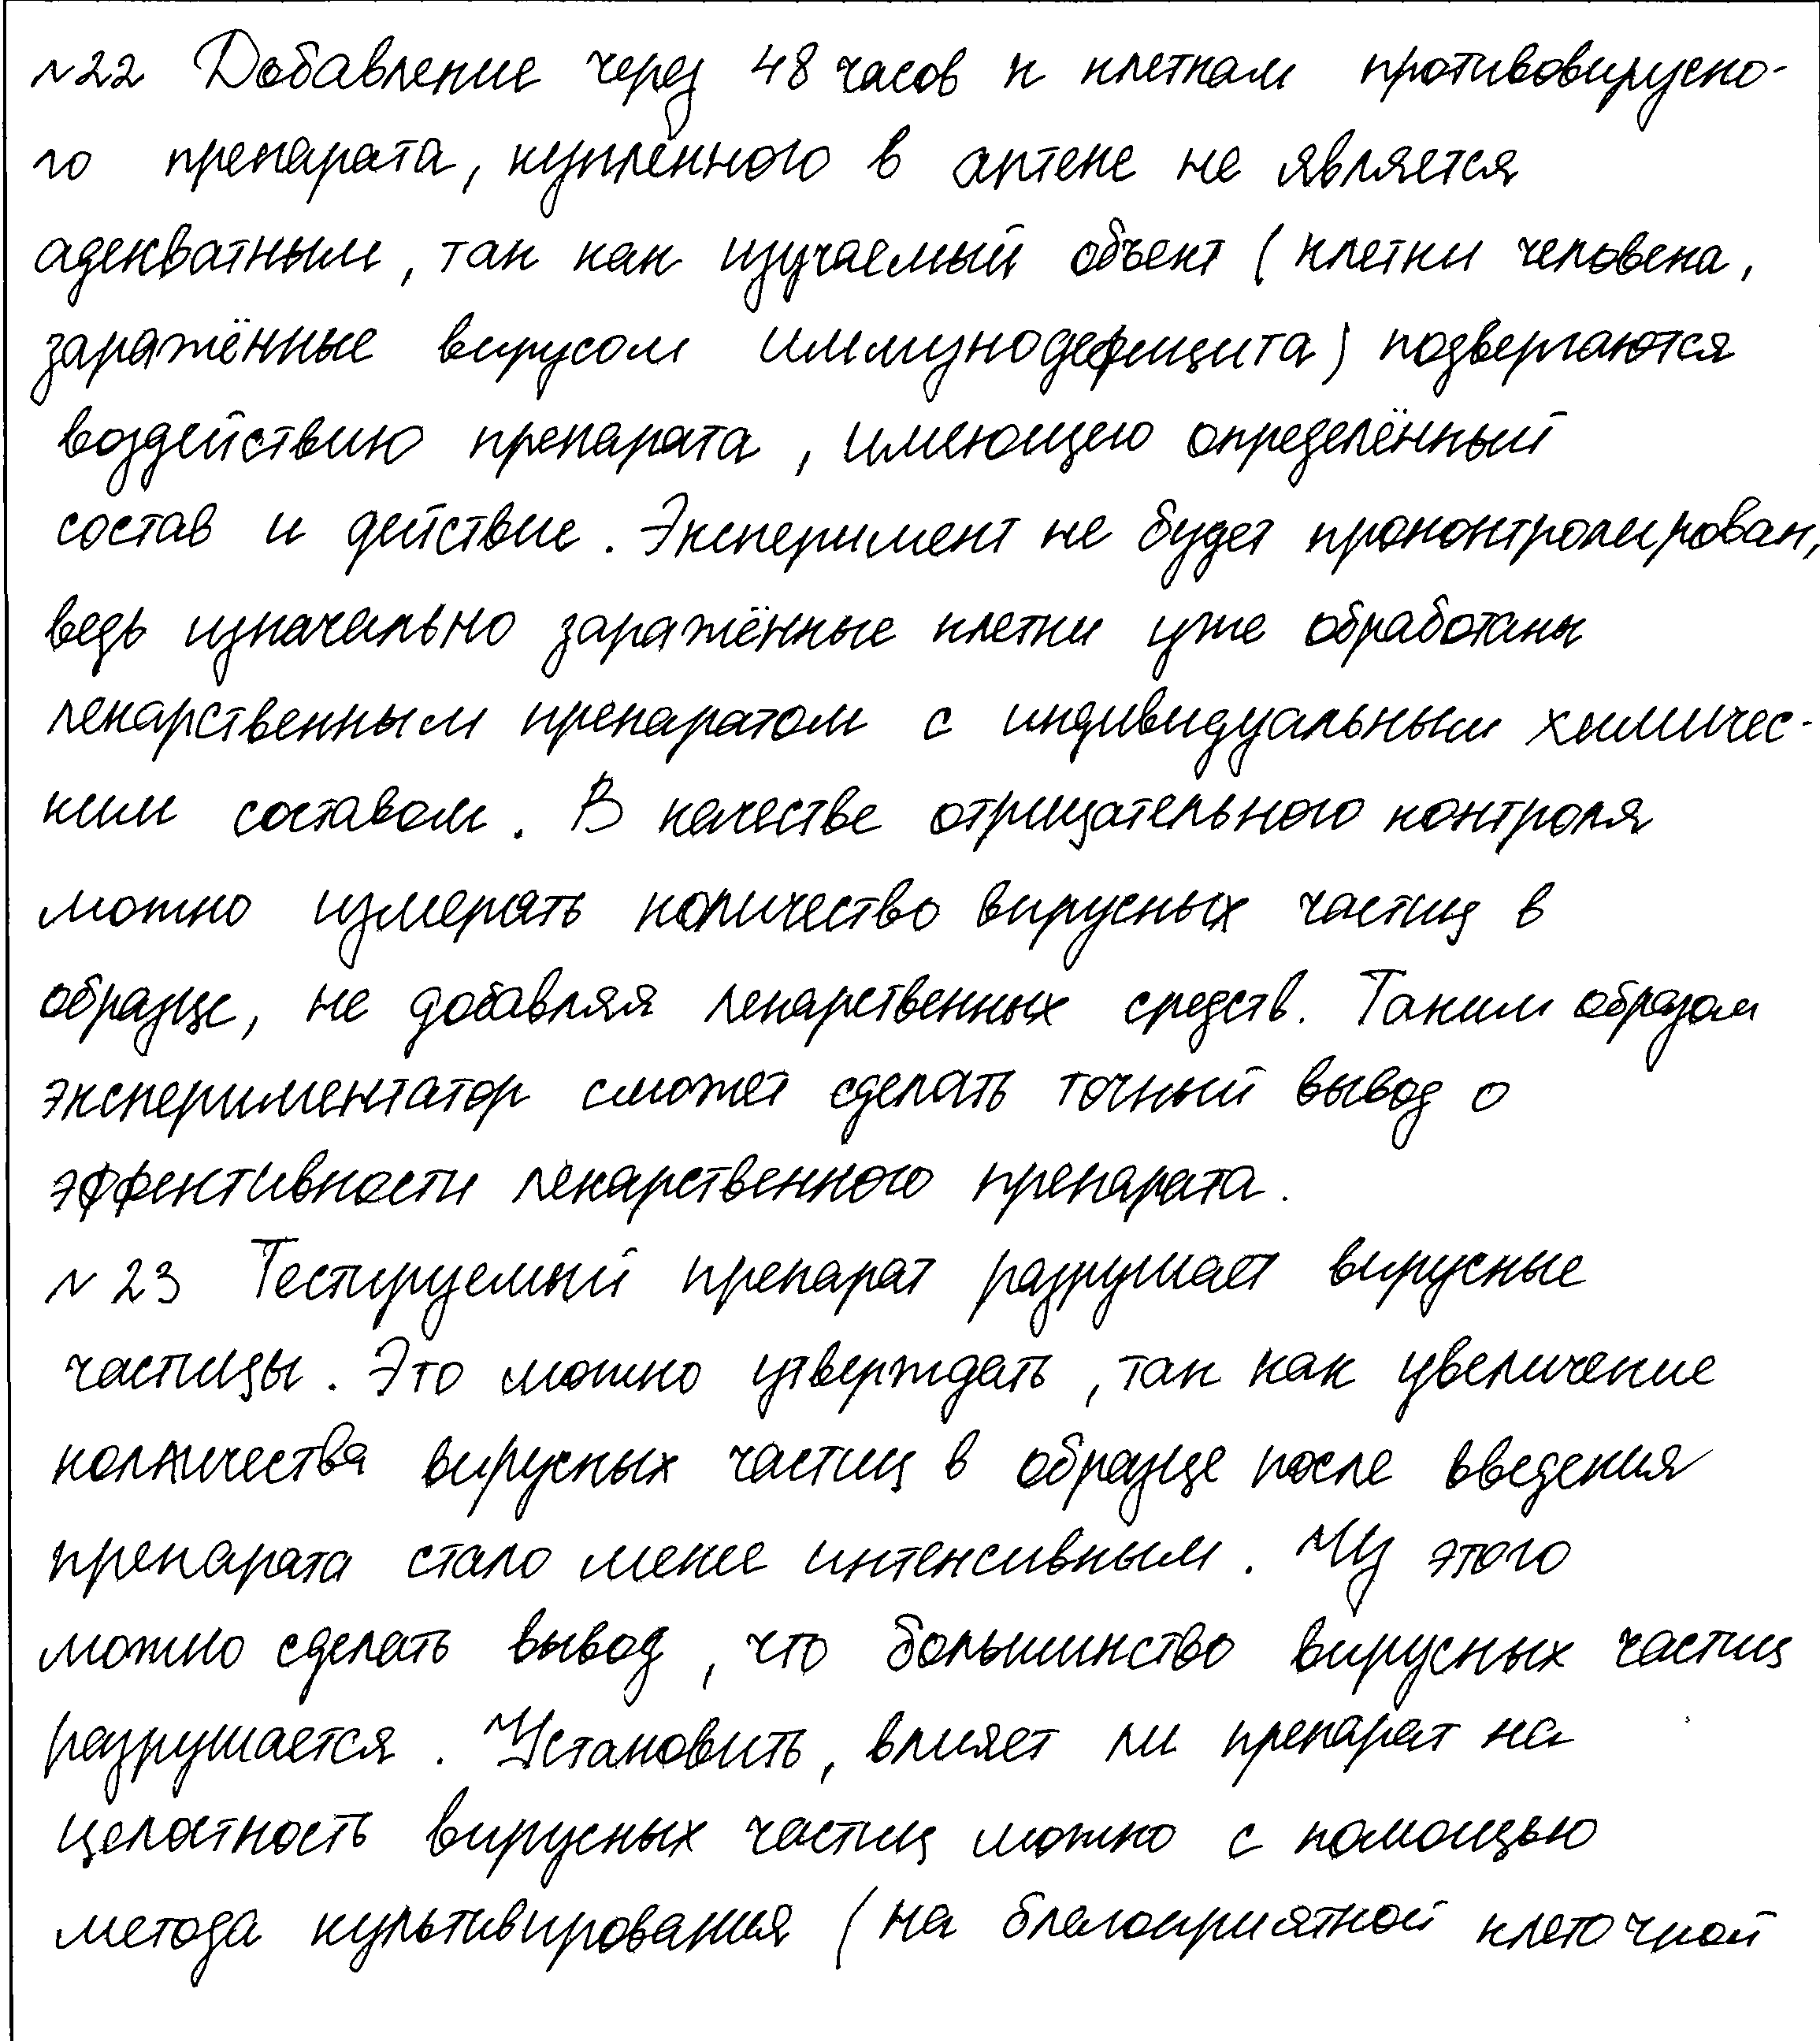 №22 Добавление через 48 часов к клеткам противовирусно-
го препарата, купленного в аптеке не является
адекватным, так как изучаемый объект (клетки человека,
заражённые вирусом иммунодефицита) подвергаются
воздействию препарата, имеющего определённый
состав и действие. Эксперимент не будет проконтролирован,
ведь изначально заражённые клетки уже обработаны
лекарственным препаратом с индивидуальным химичес-
ким составом. В качестве отрицательного контроля
можно измерять количество вирусных частиц в
образце, не добавляя лекарственных средств. Таким образом
экспериментатор сможет сделать точный вывод о
эффективности лекарственного препарата.
№23 Тестируемый препарат разрушает вирусные
частицы. Это можно утверждать, так как увеличение
количества вирусных частиц в образце после введения
препарата стало менее интенсивным. Из этого
можно сделать вывод, что большинство вирусных частиц
разрушается. Установить, влияет ли препарат на
целостность вирусных частиц можно с помощью
метода культивирования (на благоприятной клеточной